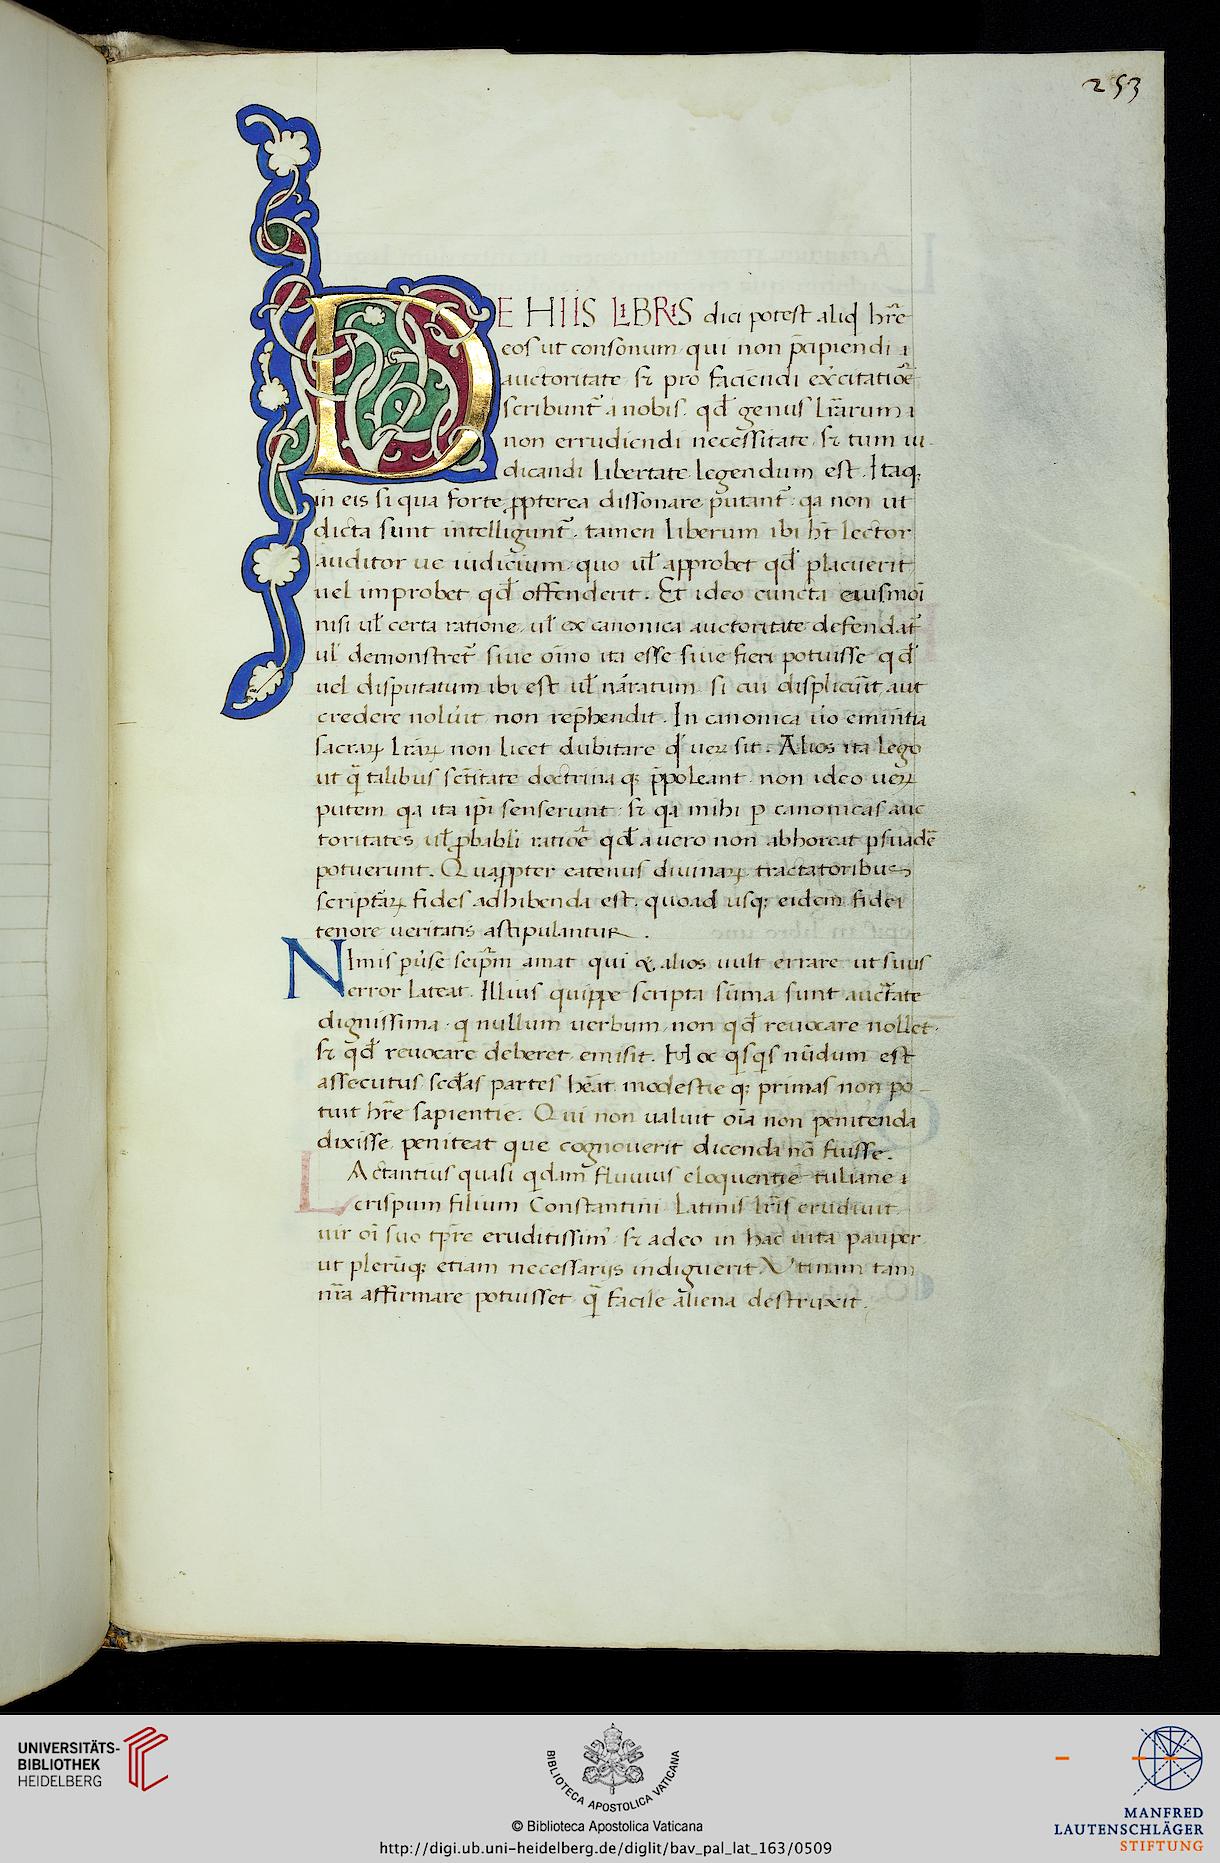 253
DE HIIS LIBRIS dici potest aliqd hr̄e
eos ut consonum qui non p̄cipiendi i
auctoritate s; pro faciendi exćitatiōe
scribunt᷑ a nobis. qd̄ genus lr̄arum i
non errudiendi necessitate s; tum iu-
dicandi libertate legendum est. Itaq;
in eis si qua forte ꝓpterea dissonare putant᷑: qa non ut
dicta sunt intelligunt᷑. tamen liberum ibi ht̄ lector
auditor ue iudicium quo ul̄ approbet qd̄ placuerit
uel improbet qd̄ offenderit. Et ideo cuncta eiusmōi
nisi ul̄ certa ratione ul̄ ex canonica auctoritate defendat᷑
ul̄ demonstret᷑ siue oīno ita esse siue fieri potuisse qd̄
uel disputatum ibi est ul̄ nāratum si cui displicūit aut
credere nolūit non rep̄hendit. In canonica ūo eminītia
sacraꝝ lrāꝝ non licet dubitare qd̄ ueꝝ sit. Alios ita lego
ut q̄ talibus sc̄titate doctrina q; p̄poleant non ideo ueꝝ
putem qa ita ip̄i senserunt s; qa mihi ꝑ canonicas auc
toritates ul̄ ꝓbabli ratiōe qd̄ a uero non abhoreat ꝑsuadē
potuerunt. Quaꝓpter eatenus diuinaꝝ tractatoribus
scriptāꝝ fides adhibenda est. quoad usq; eidem fidei
tenore ueritatis astipulantur.
NImis ꝑūse seip̄m amat qui &, alios uult errare ut suus
error lateat. Illius quippe scripta sūma sunt auct̄tate
dignissima. q nullum uerbum non qd̄ reuocare nollet.
s; qd̄ reuocare deberet emisit. Hoc qsqs nūdum est
assecutus sec̄das partes hēat modestie q; primas non po-
tuit hr̄e sapientie. Qui non ualuit oīa non penitenda
dixisse peniteat que cognouerit dicenda nō fuisse.
LActantius quasi qdam fluuius eloquentie tuliane i
crispum filium Constantini latinis lr̄is erudiuit
uir oī suo tp̄re eruditissim᷒ s; adeo in hac uita pauper
ut plerūq; etiam necessarijs indiguerit. Vtinam tam
nr̄a affirmare potuisset q̄ facile aliena destruxit.
UNIVERSITÄTS-
BIBLIOTHEK
HEIDELBERG
BIBLIOTECA APOSTOLICA VATICANA
© Biblioteca Apostolica Vaticana
http://digi.ub.uni-heidelberg.de/diglit/bav_pal_lat_163/0509
MANFRED
LAUTENSCHLÄGER
STIFTUNG